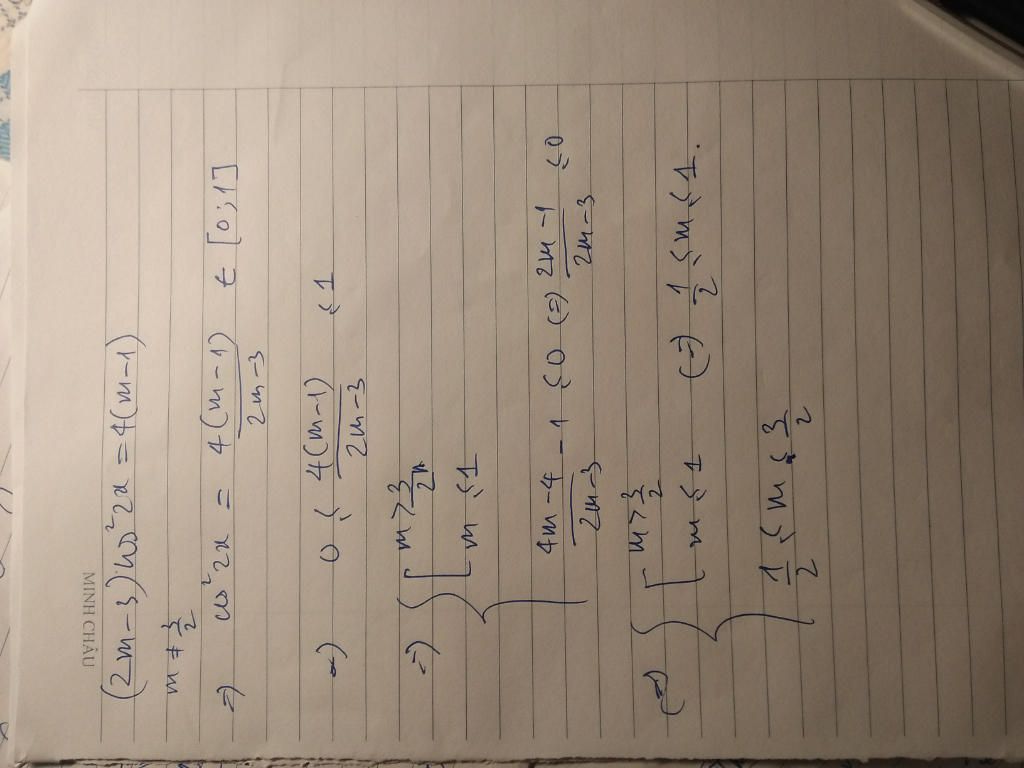 MINH CHÂU
(2m-3)cos²2x = 4(m-1)
m ≠ 3/2
=) cos²2x = 4(m-1)/(2m-3) ∈ [0;1]
=) 0 ≤ 4(m-1)/(2m-3) ≤ 1
=) { [ m > 3/2
m ≤ 1
(4m-4)/(2m-3) - 1 ≤ 0 (=) (2m-1)/(2m-3) ≤ 0
(=) { [ m > 3/2
m ≤ 1 (=) 1/2 ≤ m ≤ 1.
1/2 ≤ m < 3/2